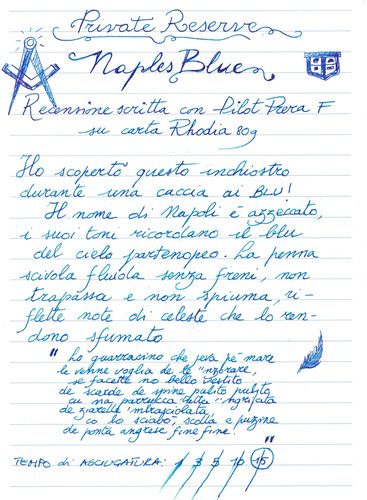 Private Reserve
Naples Blue
Recensione scritta con Pilot Prera F
su carta Rhodia 80g
Ho scoperto questo inchiostro
durante una caccia ai BLU!
Il nome di Napoli è azzeccato,
i suoi toni ricordano il blu
del cielo partenopeo. La penna
scivola fluida senza freni, non
trapassa e non spiuma, ri-
flette note di celeste che lo ren-
dono sfumato
"Lo guarracino che jeva pe' mare
le venne voglia de se 'nzorare,
se facette no bello vestito
de scarde de spine pulito pulito
cu na parrucca tutta 'ngrifata
de ziarelle 'mbrasciolata,
co lo sciabò, scolla e puzine
de ponta angrese fine fine."
TEMPO di ASCIUGATURA: 1 3 5 10 15